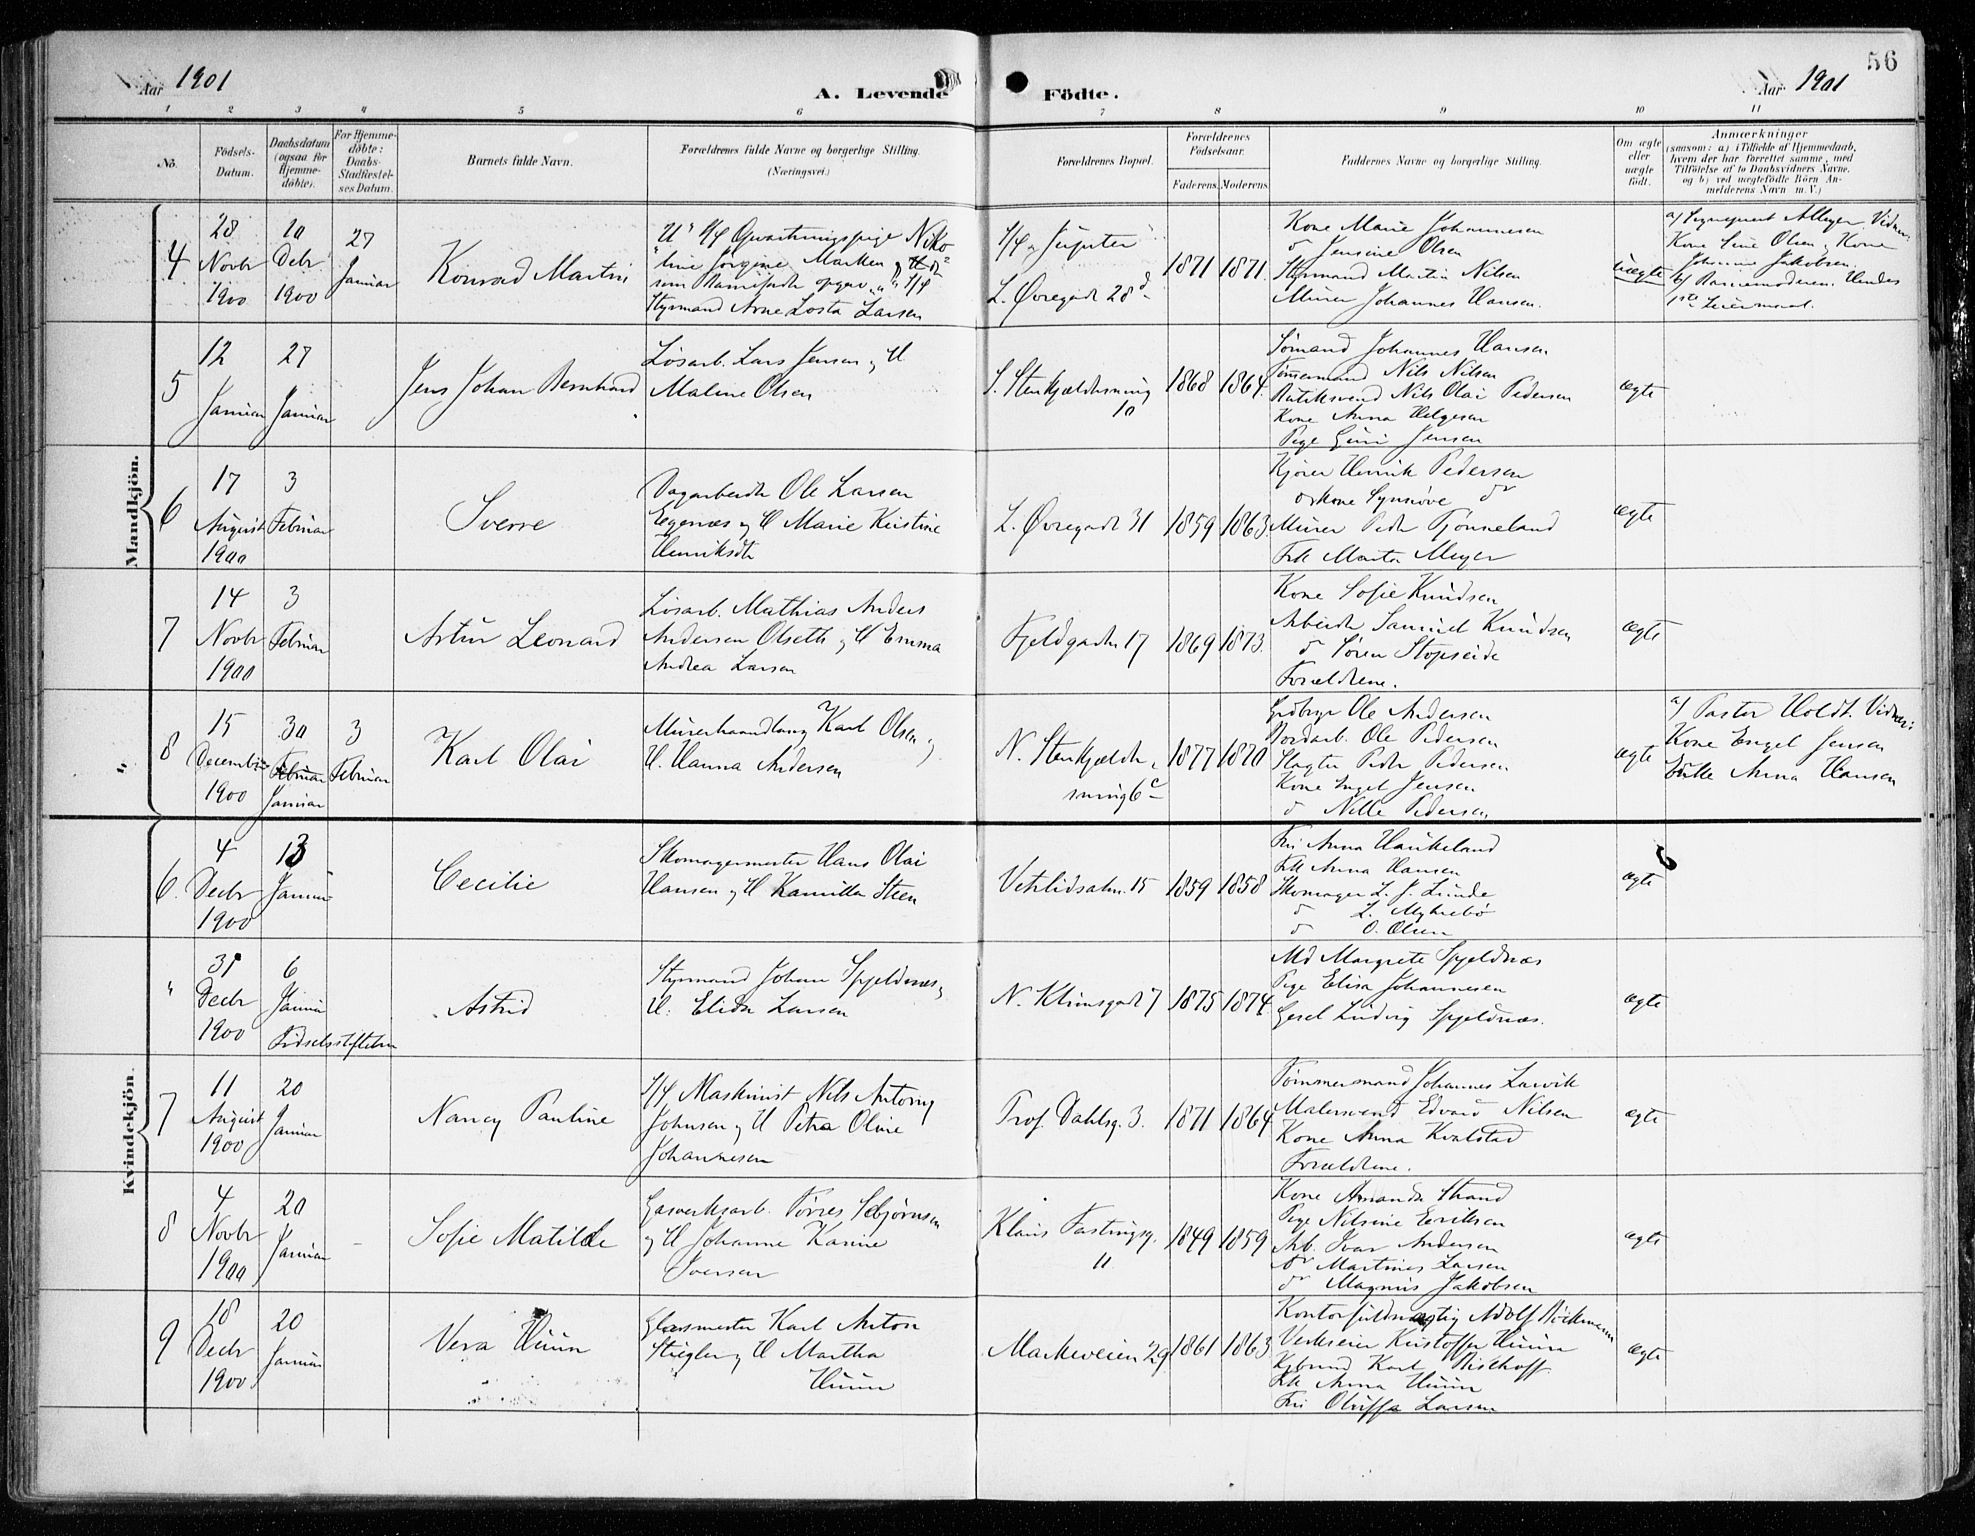 56
Aar 1901
A. Levende Födte.
Aar 1901
1 2 3 4 5 6 7 8 9 10 11
Nö.
Födsels-
Datum.
Daabsdatum
(ogsaa for
Hjemme-
döbte).
For Hjemme-
döbte:
Daabs-
Stadfæstel-
ses Datum.
Barnets fulde Navn.
Forældrenes fulde Navne og borgerlige Stilling.
(Næringsvei.)
Forældrenes Bopæl.
Forældrenes
Födselsaar.
Faderens. Moderens.
Faddernes Navne og borgerlige Stilling.
Om ægte
eller
uægte
födt.
Anmærkninger
(saasom: a) i Tilfælde af Hjemmedaab,
hvem der har forrettet samme, med
Tilföielse af to Daabsvidners Navne.
og b) ved uægtefödte Börn An-
melderens Navn m. V.)
Mandkjön.
4
28
Novbr
1900
10
Debr
1900
27
Januar
Konrad Martin
Styrmand Arne Losta Larsen
L. Øvregade 28
1871
1871
Kone Marie Johannesen
Jensine Olsen
Styrmand Martin Nilsen
Murer Johannes Hansen
uægte
Kone Sine Olsen, Kone
Johanne Jakobsen
b/ Barnemoderen. Hendes
1ste Leiermaal.
5
12
Januar
27
Januar
Jens Johan Bernhard
Løsarb. Lars Jensen, H
Maline Olsen
S. Stenkjeldersmug
10
1868
1864
Sømand Johannes Hansen
Tømmermand Nils Nilsen
Butiksvend Nils Olai Pedersen
Kone Anna Helgesen
Pige Guri Jensen
ægte
6
17
August
1900
3
Februar
Sverre
Dagarbeider Ole Larsen
Egenæs og H Marie Kristine
Henriksdtr
L. Øvregade 31
1859
1863
Kjører Henrik Pedersen
og kone Synnøve do
Murer Peder Tjønneland
Frk Marta Meyer
ægte
7
14
Novbr
1900
3
Februar
Artur Leonard
Løsarb. Mathias Anders
Andersen Olseth og H Emma
Andrea Larsen
Fjeldgaden 17
1869
1873
Kone Sofie Knudsen
Arbeider Samuel Knudsen
do Søren Stopseide
Forældrene.
ægte
8
15
December
1900
30
Februar
Januar
3
Februar
Karl Olai
Murerhaandlang Karl Olsen og
H. Hanna Andersen
N. Stenkjelder-
smug 6 c
1877
1870
Ole Andersen
Jordarb. Ole Pedersen
Slagter Peder Pedersen
Kone Engel Jensen
do Nille Pedersen
ægte
a/ Pastor Holdt. Vidner:
Kone Engel Jensen
Enke Anna Hansen
Kvindekjön.
6.
4
Decbr
1900
13
Januar
Cecilie
Skomagermester Hans Olai
Hansen og H Kamilla Steen
Vetrlidsalm. 15
1859
1858
Fru Anna Haukeland
Frk Anna Hansen
Skomager L. J. Lunde
do L. Myhrebø
do O. Olsen
ægte
"
31
Decbr
1900
6
Januar
Fødselsstiftelsen
Astrid
Styrmand Johan Spjeldnæs og
H. Elida Larsen
N. Klimsgade 7
1875
1874
Md Margrete Spjeldnæs
Pige Elisa Johannesen
Gesel Ludvig Spjeldnæs.
ægte
7
11
August
1900
20
Januar
Nancy Pauline
S/f Maskinist Nils Antony
Johnsen og H Petra Oline
Johannesen
Prof. Dahlsg. 3.
1871
1864
Tømmermand Johannes Larvik
Malersvend Edvard Nilsen
Kone Anna Kvalstad
Forældrene.
ægte
8
4
Novbr
1900
20
Januar
Sofie Matilde
Gasverksarb. Tørres Sebjørnsen
og H Johanne Karine
Iversen
Klaus Fastingsg.
11
1849
1859
Kone Amanda Strand
Pige Nilsine Eriksen
Arb. Ivar Andersen
do Martines Larsen
do Magnus Jakobsen
ægte
9
18
Decbr
1900
20
Januar
Vera Huun
Glasmester Karl Anton
Stiegler og H Martha
Huun
Markeveien 29
1861
1863
Kontorfuldmægtig Adolf Böckmann
Verkseier Kristoffer Huun
Kjbmd Karl Bischoff
Frk Anna Huun
Fru Oluffa Larsen
ægte